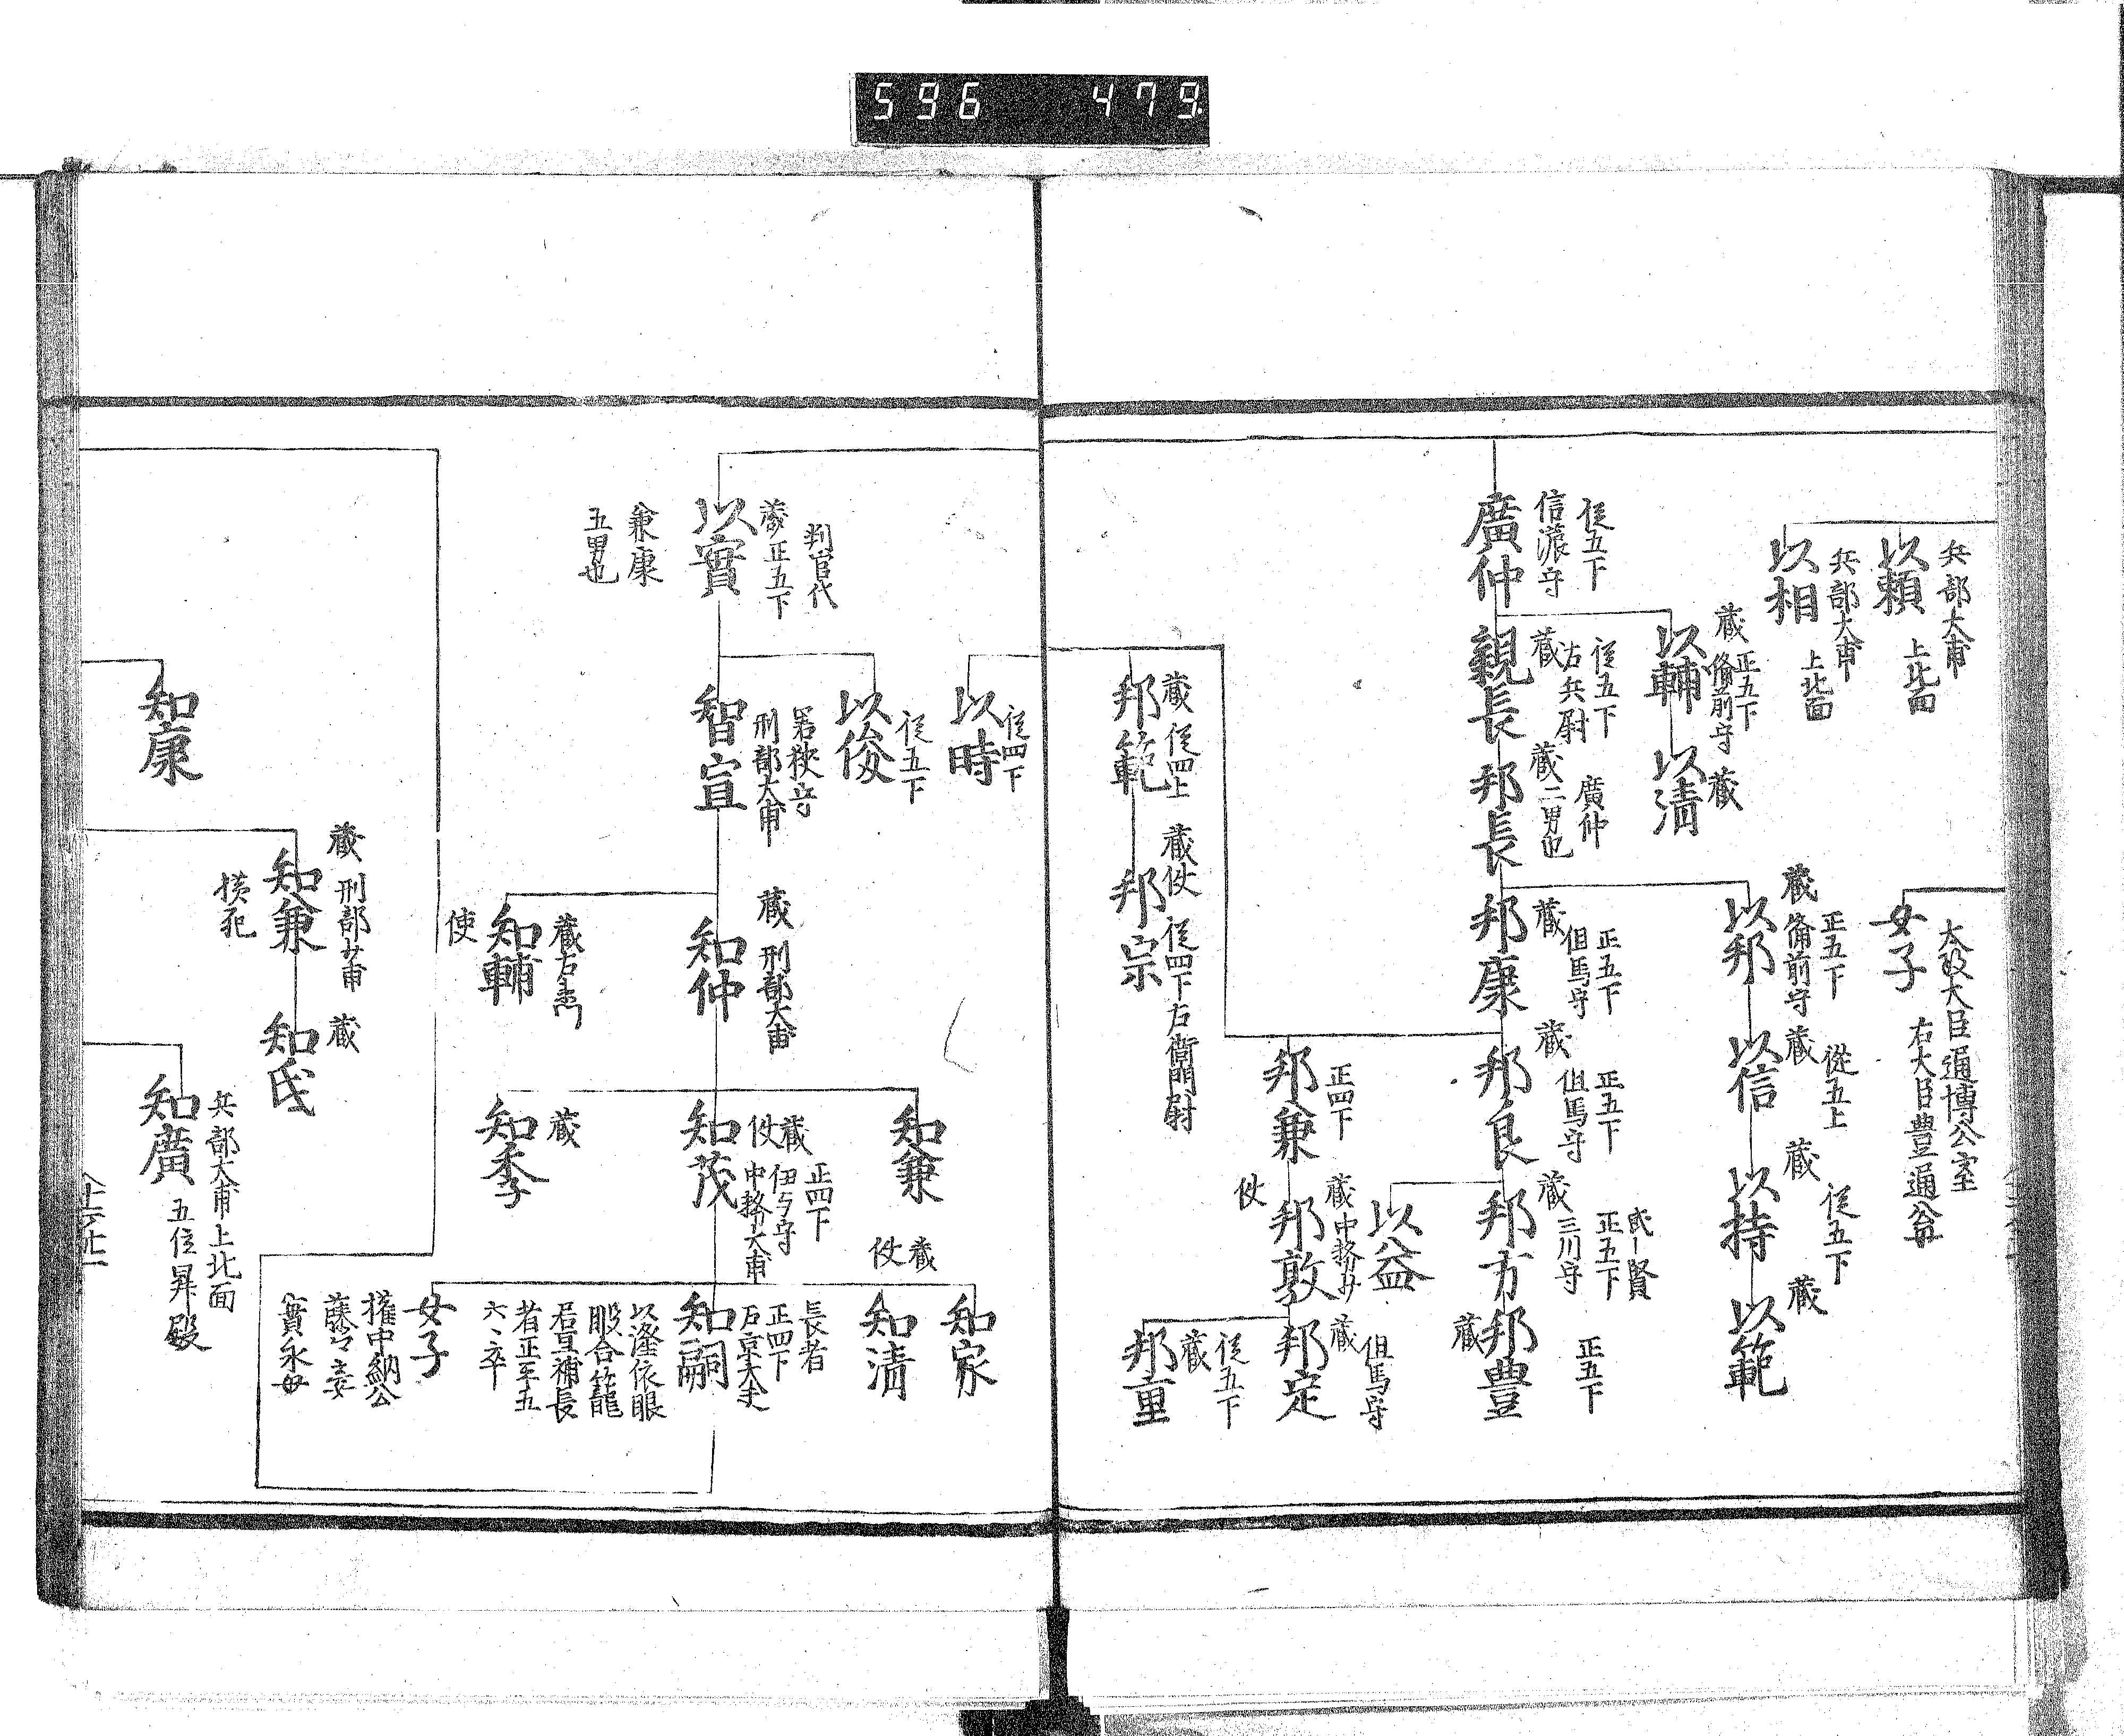 596 479
兵部大甫
以頼
上北面
兵部大甫
以相
上北面
従五下
信濃守
廣仲
蔵
正五下
備前守
以輔
蔵
以清
従五下
蔵
右兵尉
親長
廣仲
蔵二男也
邦長
太政大臣通博公室
右大臣豊通公母
女子
蔵
正五下
備前守
以邦
従五上
蔵
以信
蔵
従五下
以持
蔵
以範
正五下
蔵
但馬守
邦康
正五下
蔵
但馬守
邦良
正五下
蔵
三川守
邦方
正五下
蔵
邦豊
以益
正四下
邦兼
蔵
中務少
使
邦敦
蔵
但馬守
邦定
従五下
蔵
邦重
蔵
従四上
邦範
蔵使
従四下右衛門尉
邦宗
従四下
以時
判官代
蔵
正五下
以實
兼康
五男也
従五下
以俊
若狭守
刑部大甫
智宣
蔵
刑部大甫
知仲
蔵右
知輔
使
知兼
正四下
蔵
伊与守
使
中務大甫
知茂
蔵
知季
知家
蔵
使
知清
長者
正四下
右京大夫
知嗣
女子
権中納公
藤
實永母
知康
蔵
刑部少甫
知兼
蔵
知氏
兵部大甫上北面
五位昇殿
知廣